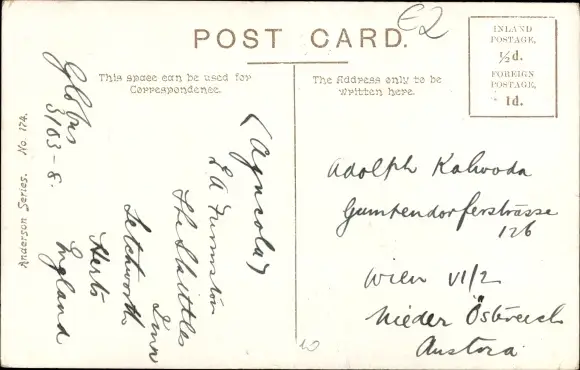 POST CARD.
€2
INLAND
POSTAGE,
½d.
FOREIGN
POSTAGE,
1d.
This space can be used for
Correspondence.
The Address only to be
written here.
Anderson Series. No. 174.
Globus
3103-8.
(Agricola)
The Skittles
Inn
Letchworth
Herts
England
Adolph Kalwoda
Gumpendorferstrasse
126
Wien VI/2
Nieder Östereich
Austria